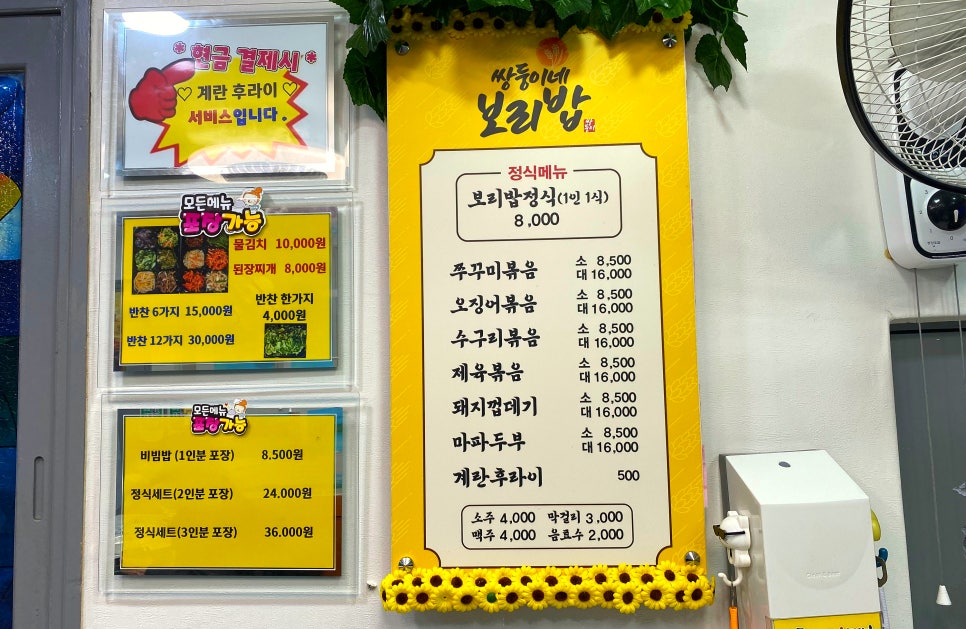 * 현금 결제시 *
♡ 계란 후라이 ♡
서비스입니다.
모든메뉴
포장가능
물김치 10,000원
된장찌개 8,000원
반찬 6가지 15,000원
반찬 한가지
4,000원
반찬 12가지 30,000원
모든메뉴
포장가능
비빔밥 (1인분 포장) 8.500원
정식세트(2인분 포장) 24.000원
정식세트(3인분 포장) 36.000원
쌍둥이네
보리밥
정식메뉴
보리밥정식(1인 1식)
8,000
쭈꾸미볶음 소 8,500
대 16,000
오징어볶음 소 8,500
대 16,000
수구리볶음 소 8,500
대 16,000
제육볶음 소 8,500
대 16,000
돼지껍데기 소 8,500
대 16,000
마파두부 소 8,500
대 16,000
계란후라이 500
소주 4,000 막걸리 3,000
맥주 4,000 음료수 2,000